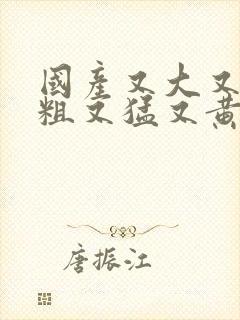 國產又大又
粗又猛又黄
唐振江